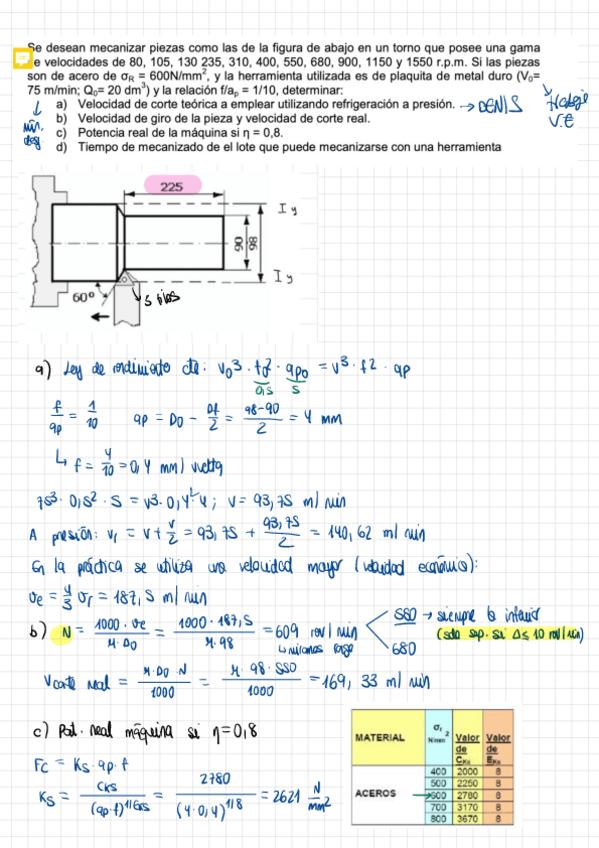 Se desean mecanizar piezas como las de la figura de abajo en un torno que posee una gama
e velocidades de 80, 105, 130 235, 310, 400, 550, 680, 900, 1150 y 1550 r.p.m. Si las piezas
son de acero de σR = 600N/mm², y la herramienta utilizada es de plaquita de metal duro (V₀=
75 m/min; Q₀= 20 dm³) y la relación f/aₚ = 1/10, determinar:
a) Velocidad de corte teórica a emplear utilizando refrigeración a presión. → DENIS
b) Velocidad de giro de la pieza y velocidad de corte real.
c) Potencia real de la máquina si η = 0,8.
d) Tiempo de mecanizado de el lote que puede mecanizarse con una herramienta
↓ mín. desg
↓ trabaje v.e
225
I y
90
98
I y
60º
a) Ley de rendimiento cte: V₀³ · f₀² · ap₀ = V³ · f² · ap
0,5 5
f/ap = 1/10 ap = D₀ - Df/2 = 98-90/2 = 4 mm
↳ f = 4/10 = 0,4 mm/vuelta
75³ · 0,5² · 5 = V³ · 0,4² · 4 ; V = 93,75 m/min
A presión: Vr = V + V/2 = 93,75 + 93,75/2 = 140,62 m/min
En la práctica se utiliza una velocidad mayor (velocidad económica):
Ve = 4/3 Vr = 187,5 m/min
b) N = 1000 · Ve/π · D₀ = 1000 · 187,5/π · 98 = 609 rev/min
↳ miramos
550 → siempre la inferior
(solo sup. si Δ ≤ 10 rev/min)
680
Vcorte real = π · D₀ · N/1000 = π · 98 · 550/1000 = 169,33 m/min
c) Pot. real máquina si η = 0,8
Fc = Ks · ap · f
Ks = CKS/(ap · f)^1/EKS = 2780/(4 · 0,4)^1/8 = 2621 N/mm²
MATERIAL σr N/mm² Valor de CKs Valor de EKs
ACEROS
400 2000 8
500 2250 8
600 2780 8
700 3170 8
800 3670 8